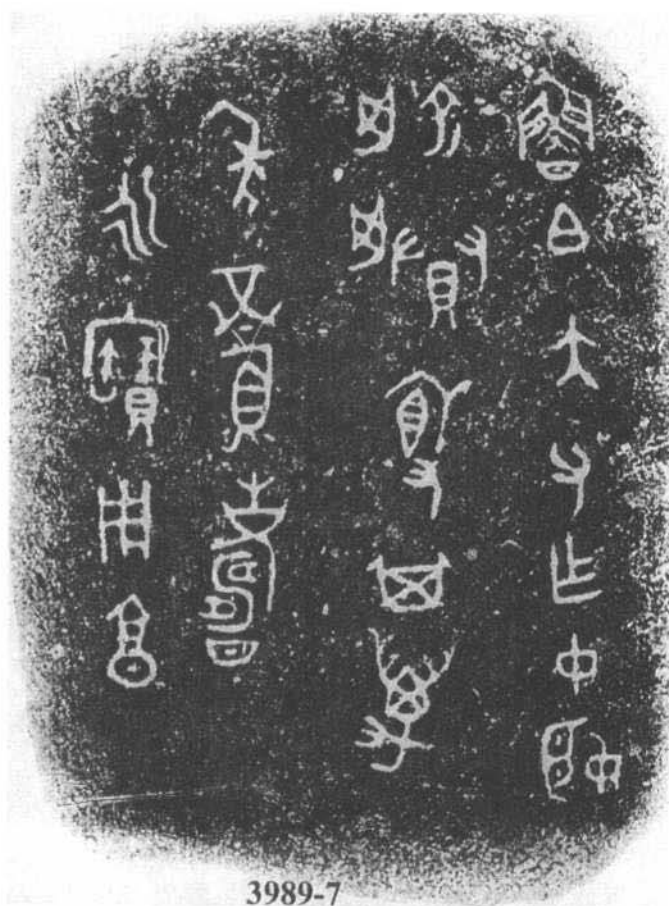 魯白大父乍中姬
俞媵𣪘其萬
年眉壽
永寶用享
3989-7